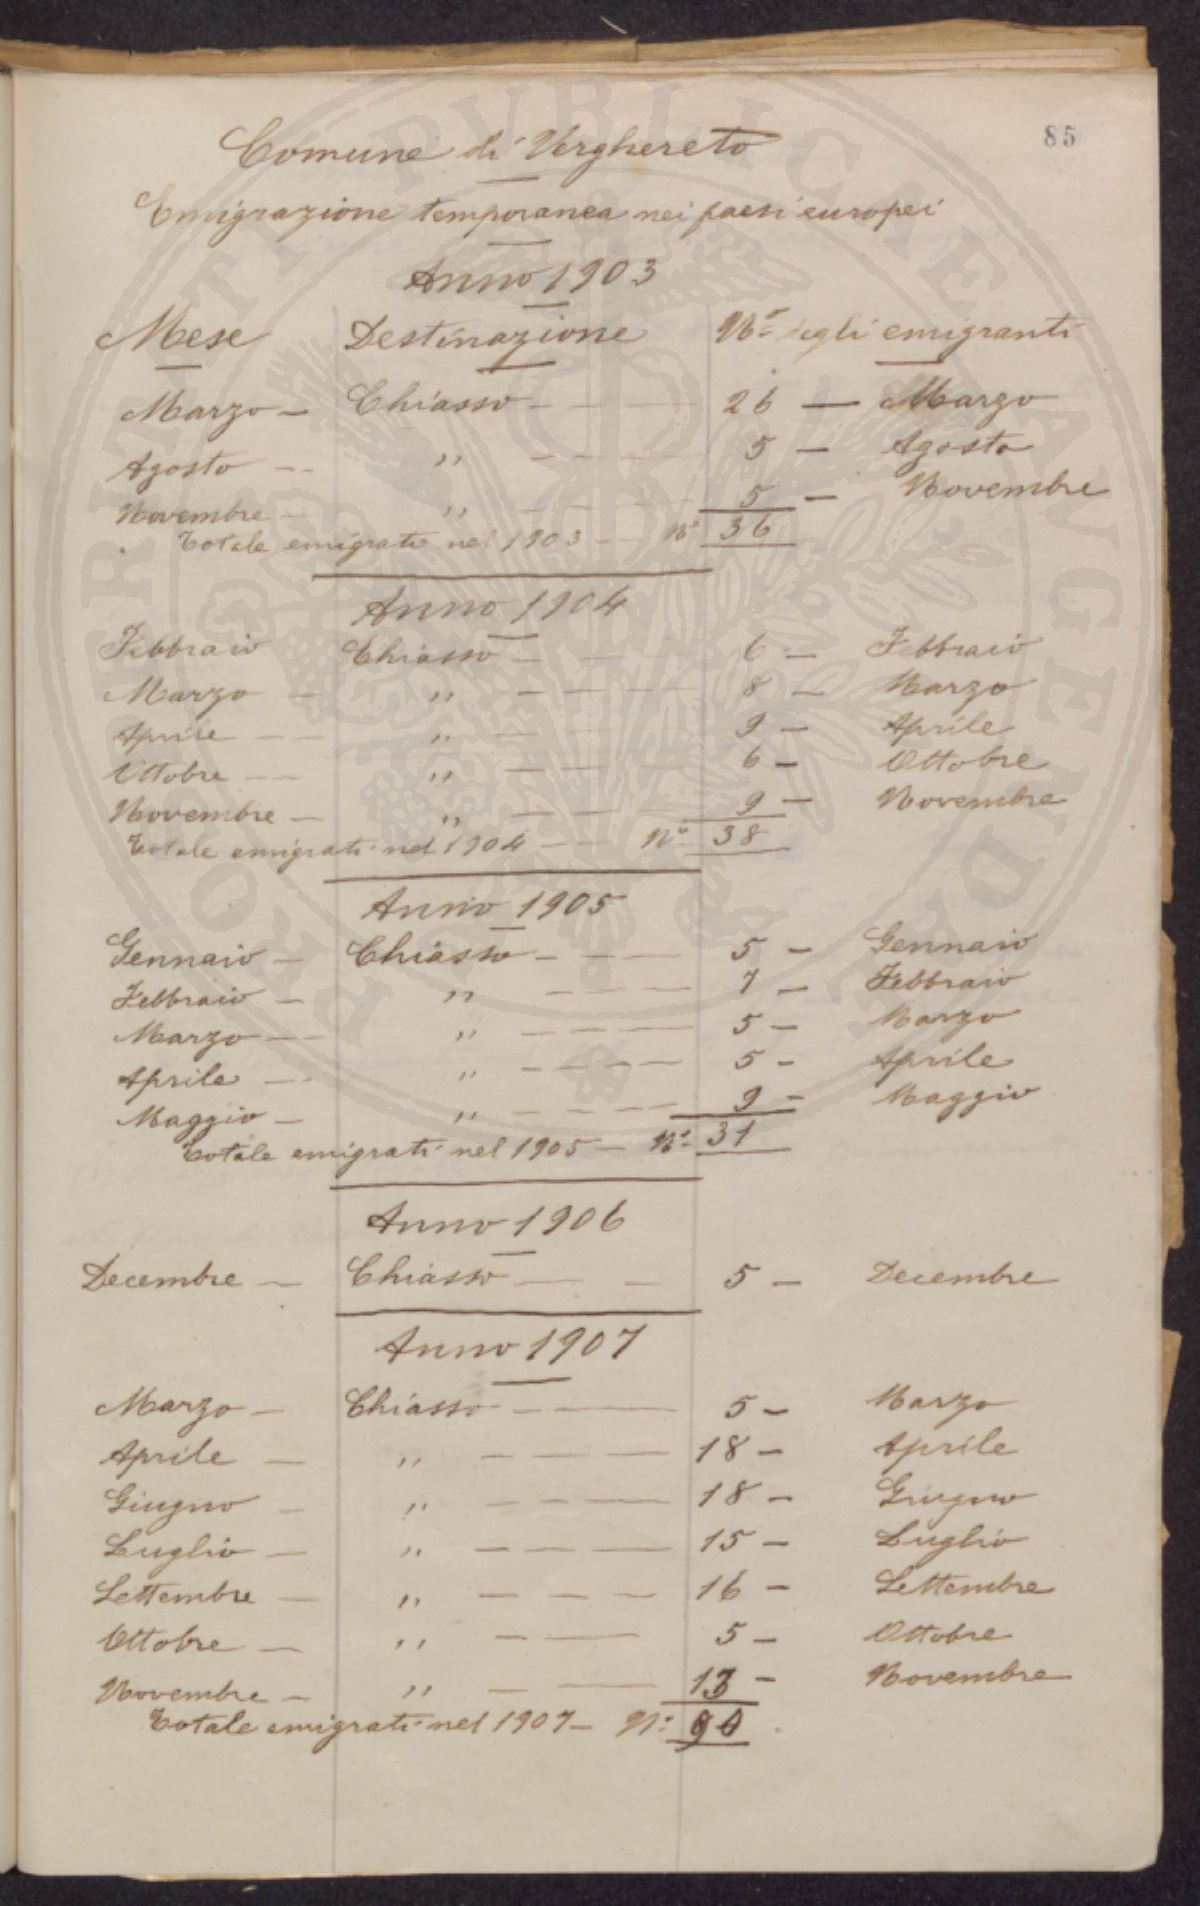 85
Comune di Verghereto
Emigrazione temporanea nei paesi europei
Anno 1903
Mese Destinazione N.º degli emigranti
Marzo — Chiasso — — — 26 — Marzo
Agosto — „ — — — 5 — Agosto
Novembre — „ — — — 5 — Novembre
Totale emigrati nel 1903 — Nº 36
Anno 1904
Febbraio Chiasso — — — 6 — Febbraio
Marzo — „ — — — — 8 — Marzo
Aprile — — „ — — — 9 — Aprile
Ottobre — — „ — — — 6 — Ottobre
Novembre — „ — — — 9 — Novembre
Totale emigrati nel 1904 — — Nº 38
Anno 1905
Gennaio — Chiasso — — — 5 — Gennaio
Febbraio — „ — — — 7 — Febbraio
Marzo — — „ — — — — 5 — Marzo
Aprile — „ — — — — 5 — Aprile
Maggio — „ — — — — 9 — Maggio
Totale emigrati nel 1905 — Nº 31
Anno 1906
Decembre — Chiasso — — 5 — Decembre
Anno 1907
Marzo — Chiasso — — — 5 — Marzo
Aprile — „ — — — — 18 — Aprile
Giugno — „ — — — 18 — Giugno
Luglio — „ — — — — 15 — Luglio
Settembre — „ — — — 16 — Settembre
Ottobre — „ — — 5 — Ottobre
Novembre — „ — — 13 — Novembre
Totale emigrati nel 1907 — Nº 90
PROSPERITATI PUBLICAE AVGENDAE